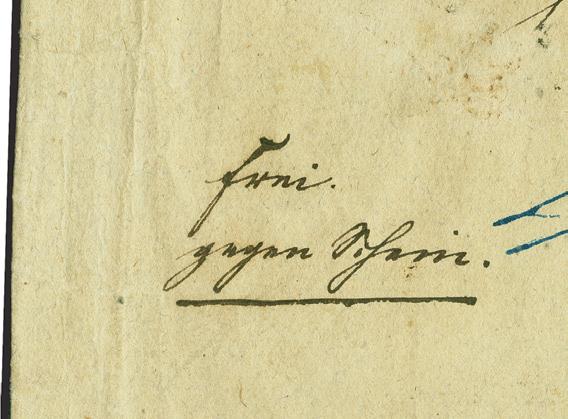 frei.
gegen Schein.